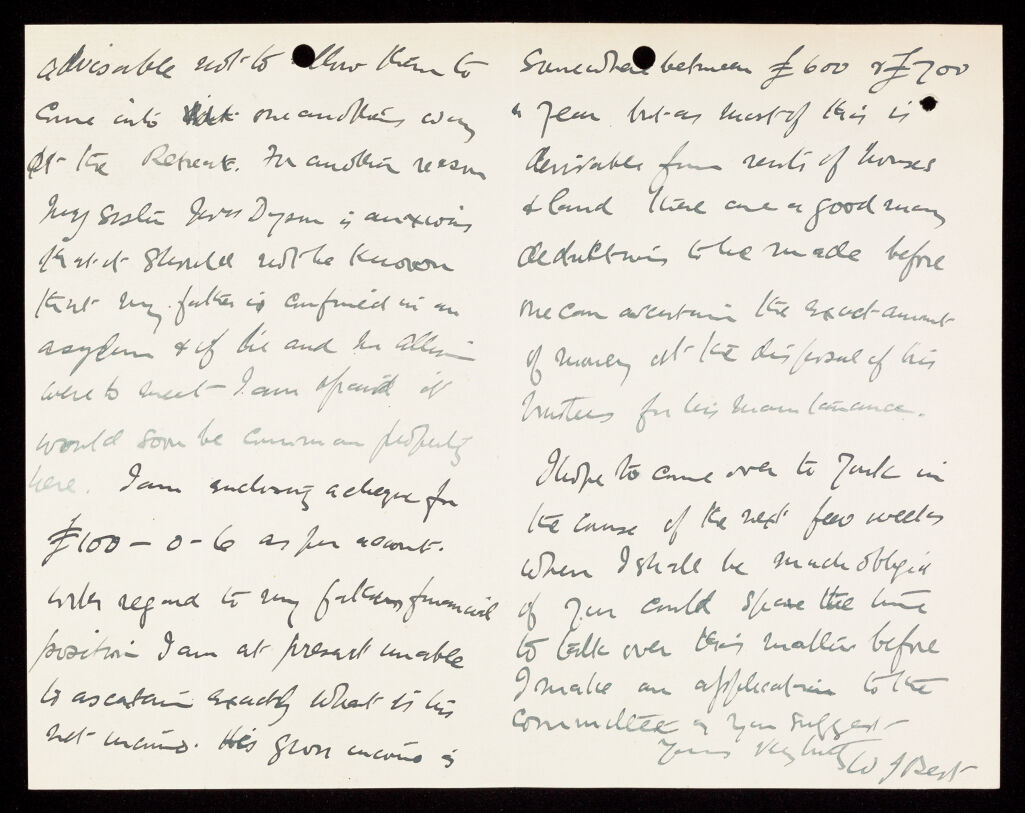 advisable not to allow them to
come into one anothers way
at the Retreat. For another reason
my sister Mrs Dyson is anxious
that it should not be known
that my father is confined in an
asylum & if he and Mr Allen
were to meet I am afraid it
would soon be common property
here. I am enclosing a cheque for
£100 - 0 - 6 as per account.
With regard to my fathers financial
position I am at present unable
to ascertain exactly what is his
net income. His gross income is
somewhere between £600 & £700
a year but as most of this is
derivable from rents of houses
& land there are a good many
deductions to be made before
one can ascertain the exact amount
of money at the disposal of his
trustees for his maintanance.
I hope to come over to York in
the course of the next few weeks
when I shall be much obliged
if you could spare the time
to talk over this matter before
I make an application to the
Committee as you suggest
Yours very truly
W J Best